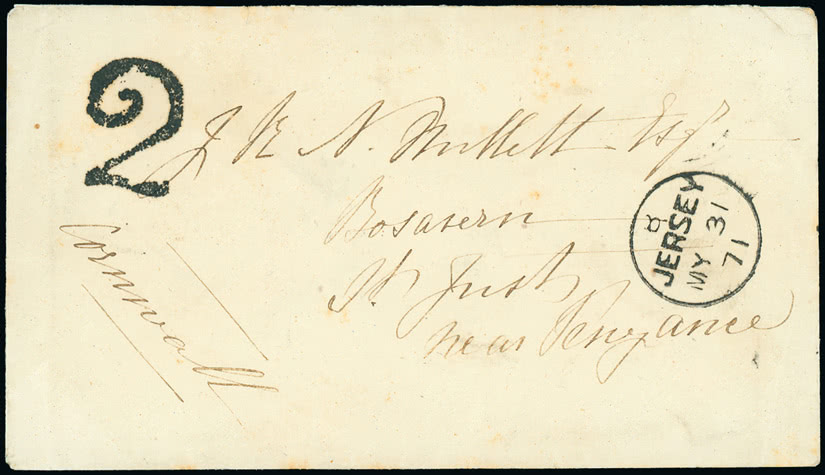 2
J N N. Millett Esqr
Bosavern
St Just
near Penzance
Cornwall
8
JERSEY
MY 31
71